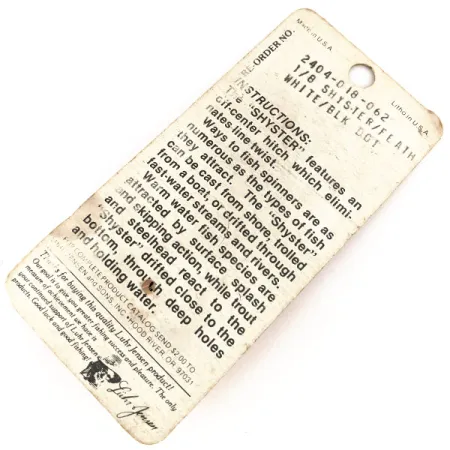 Made in U.S.A.
Litho in U.S.A.
RE-ORDER NO.
2404-018-062
1/8 SHYSTER/FEATH
WHITE/BLK DOT
INSTRUCTIONS:
The "SHYSTER" features an
off-center hitch which elimi-
nates line twist.
Ways to fish spinners are as
numerous as the types of fish
they attract. The "Shyster"
can be cast from shore, trolled
from a boat or drifted through
fast-water streams and rivers.
Warm water fish species are
attracted by surface splash
and skipping action, while trout
and steelhead react to the
"Shyster" drifted close to the
bottom, through deep holes
and holding water.
COMPLETE PRODUCT CATALOG SEND $2.00 TO
JENSEN and SONS, INC. HOOD RIVER, OR 97031
for buying this quality Luhr Jensen product!
Our goal is to give you greater fishing success and pleasure. The only
measure of achievement we have is
your continued support of Luhr Jensen
products. Good luck and good fishing!
Luhr Jensen